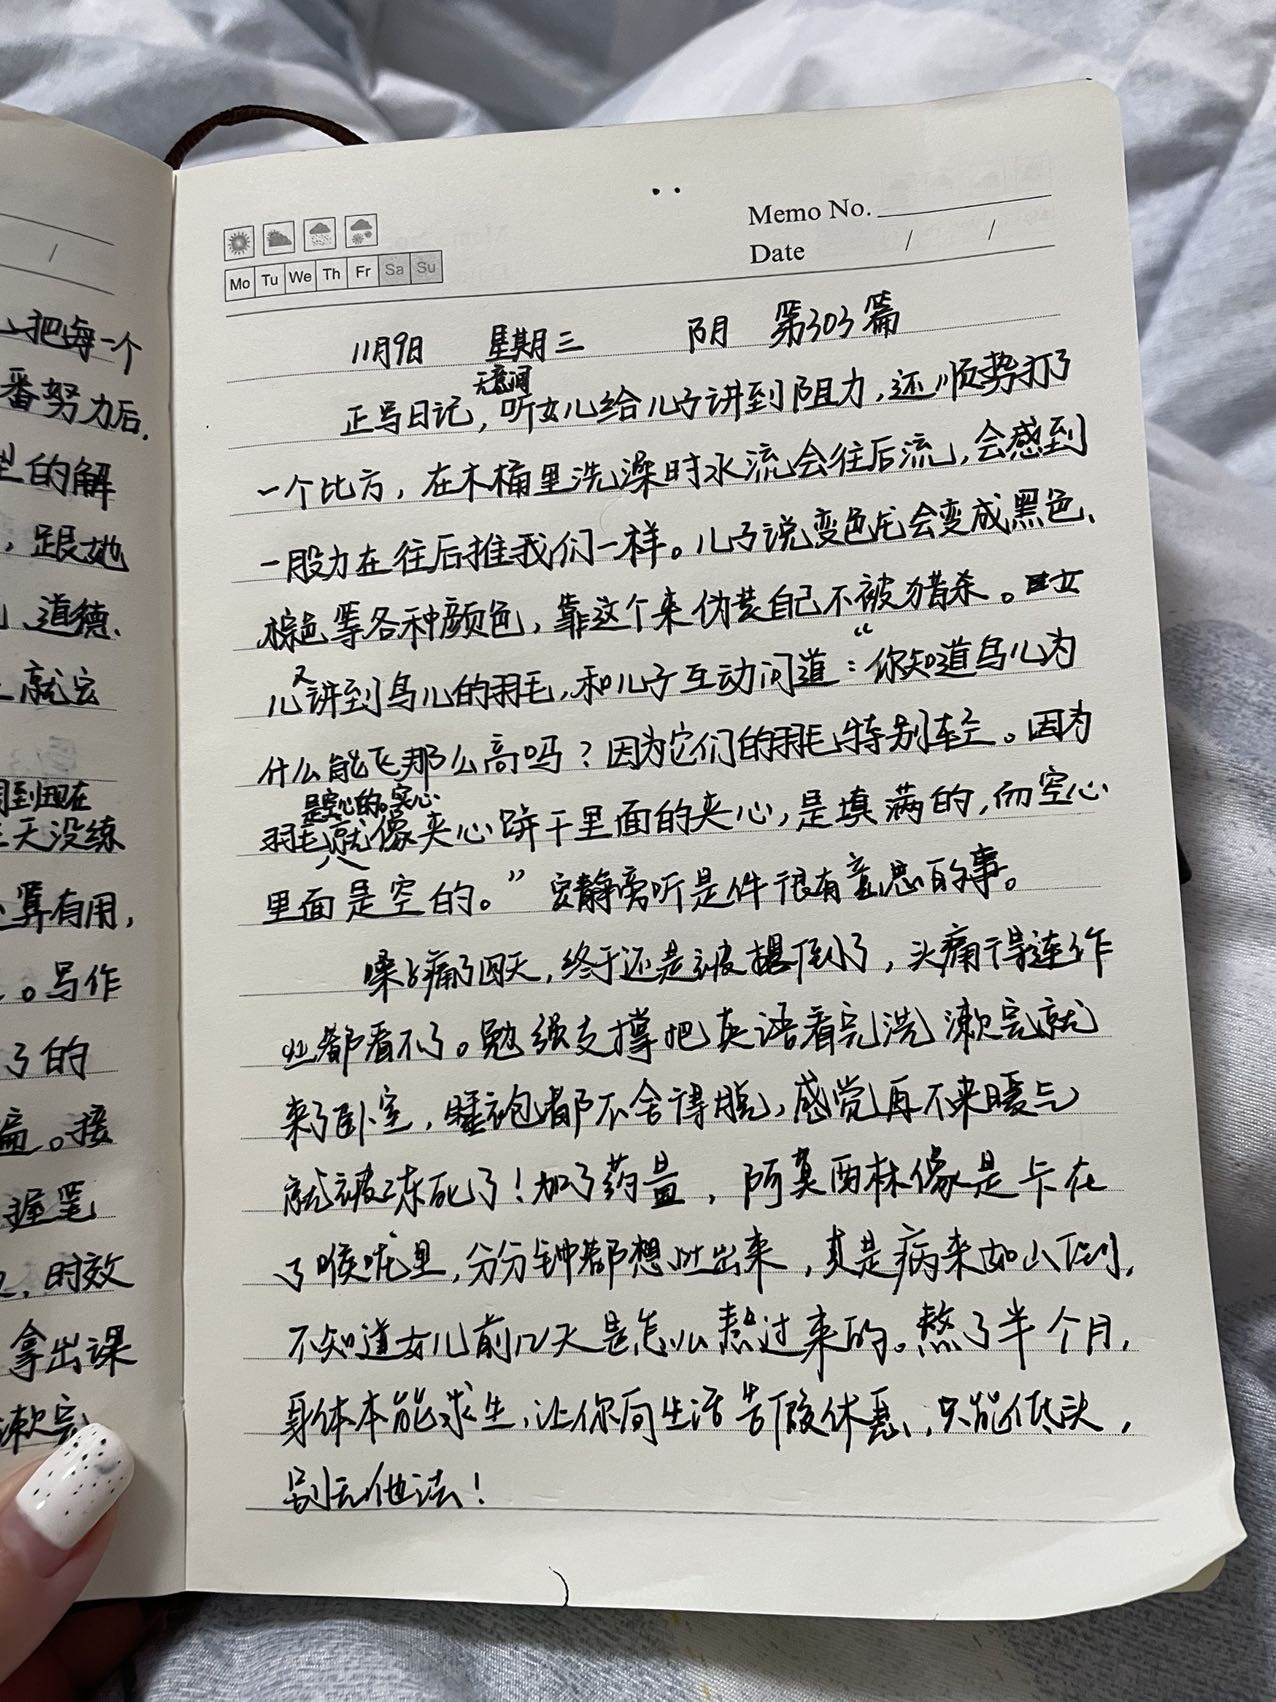 /
把每一个
番努力后,
的解
,跟她
道德、
就会
到现在
天没练
算有用,
。写作
了的
遍。接
握笔
,时效
拿出课
漱完
Memo No.
Date / /
Mo Tu We Th Fr Sa Su
11月9日 星期三 阴 第303篇
无意间
正写日记,听女儿给儿子讲到阻力,还顺势打了
一个比方,在木桶里洗澡时水流会往后流,会感到
一股力在往后推我们一样。儿子说变色龙会变成黑色、
棕色等各种颜色,靠这个来伪装自己不被猎杀。女
儿又讲到鸟儿的羽毛,和儿子互动问道:“你知道鸟儿为
什么能飞那么高吗?因为它们的羽毛特别轻。因为
是空心的。实心
羽毛就像夹心饼干里面的夹心,是填满的,而空心
里面是空的。”安静旁听是件很有意思的事。
嗓子痛了四天,终于还是被撂倒了,头痛得连作
业都看不了。勉强支撑把英语看完洗漱完就
来了卧室,睡袍都不舍得脱,感觉再不来暖气
就被冻死了!加了药量,阿莫西林像是卡在
了喉咙里,分分钟都想吐出来,真是病来如山倒,
不知道女儿前几天是怎么熬过来的。熬了半个月,
身体本能求生,让你向生活告假休息,只能低头,
别无他法!